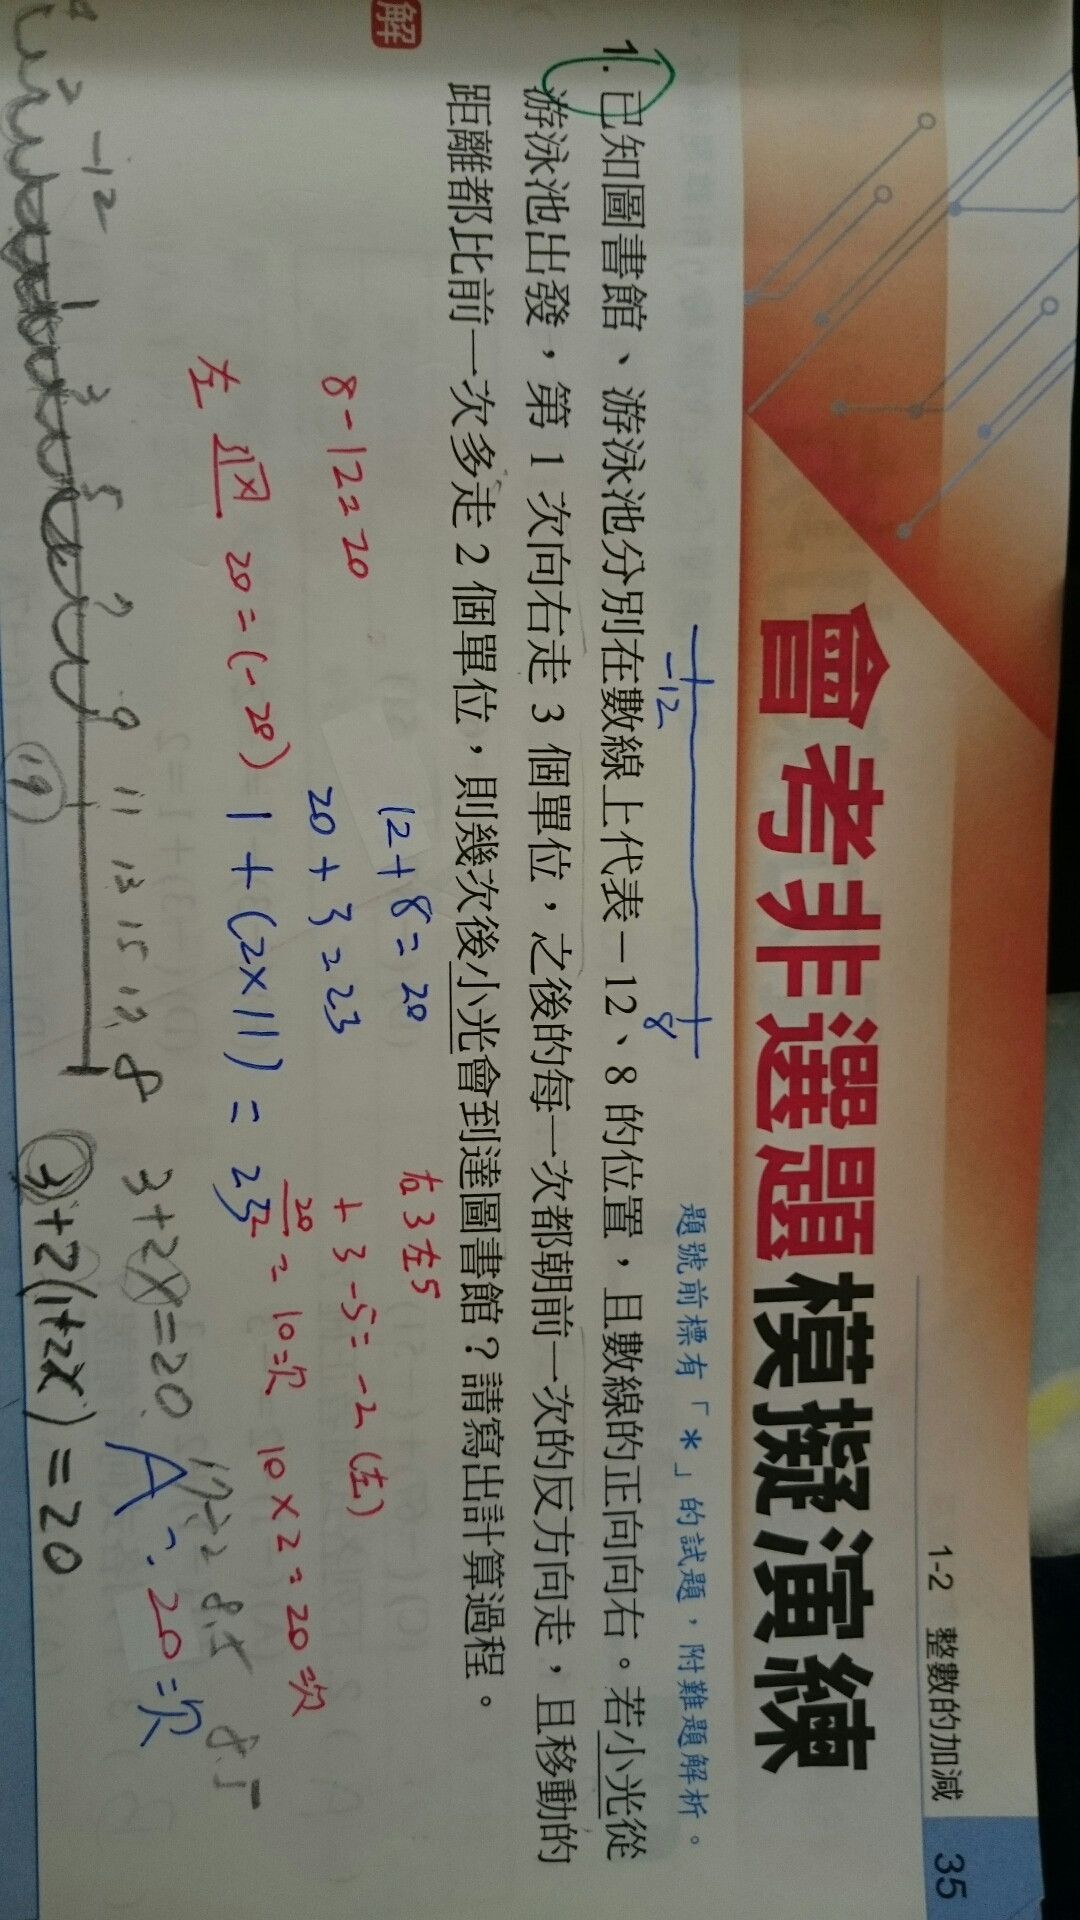 1-2 整數的加減 35
會考非選題模擬演練
題號前標有「*」的試題，附難題解析。
-12 8
1. 已知圖書館、游泳池分別在數線上代表－12、8 的位置，且數線的正向向右。若小光從
游泳池出發，第 1 次向右走 3 個單位，之後的每一次都朝前一次的反方向走，且移動的
距離都比前一次多走 2 個單位，則幾次後小光會到達圖書館？請寫出計算過程。
解
12+8=20 右3左5
8-12=20 20+3=23 +3-5=-2(左)
20/2=10次 10×2=20次
左 20=(-20) 1+(2×11)=23
A: 20次
-12 1 3 5 7 9 11 13 15 17 8 3+2x=20 17÷2 8.5 8.5
19 3+2(1+2x)=20